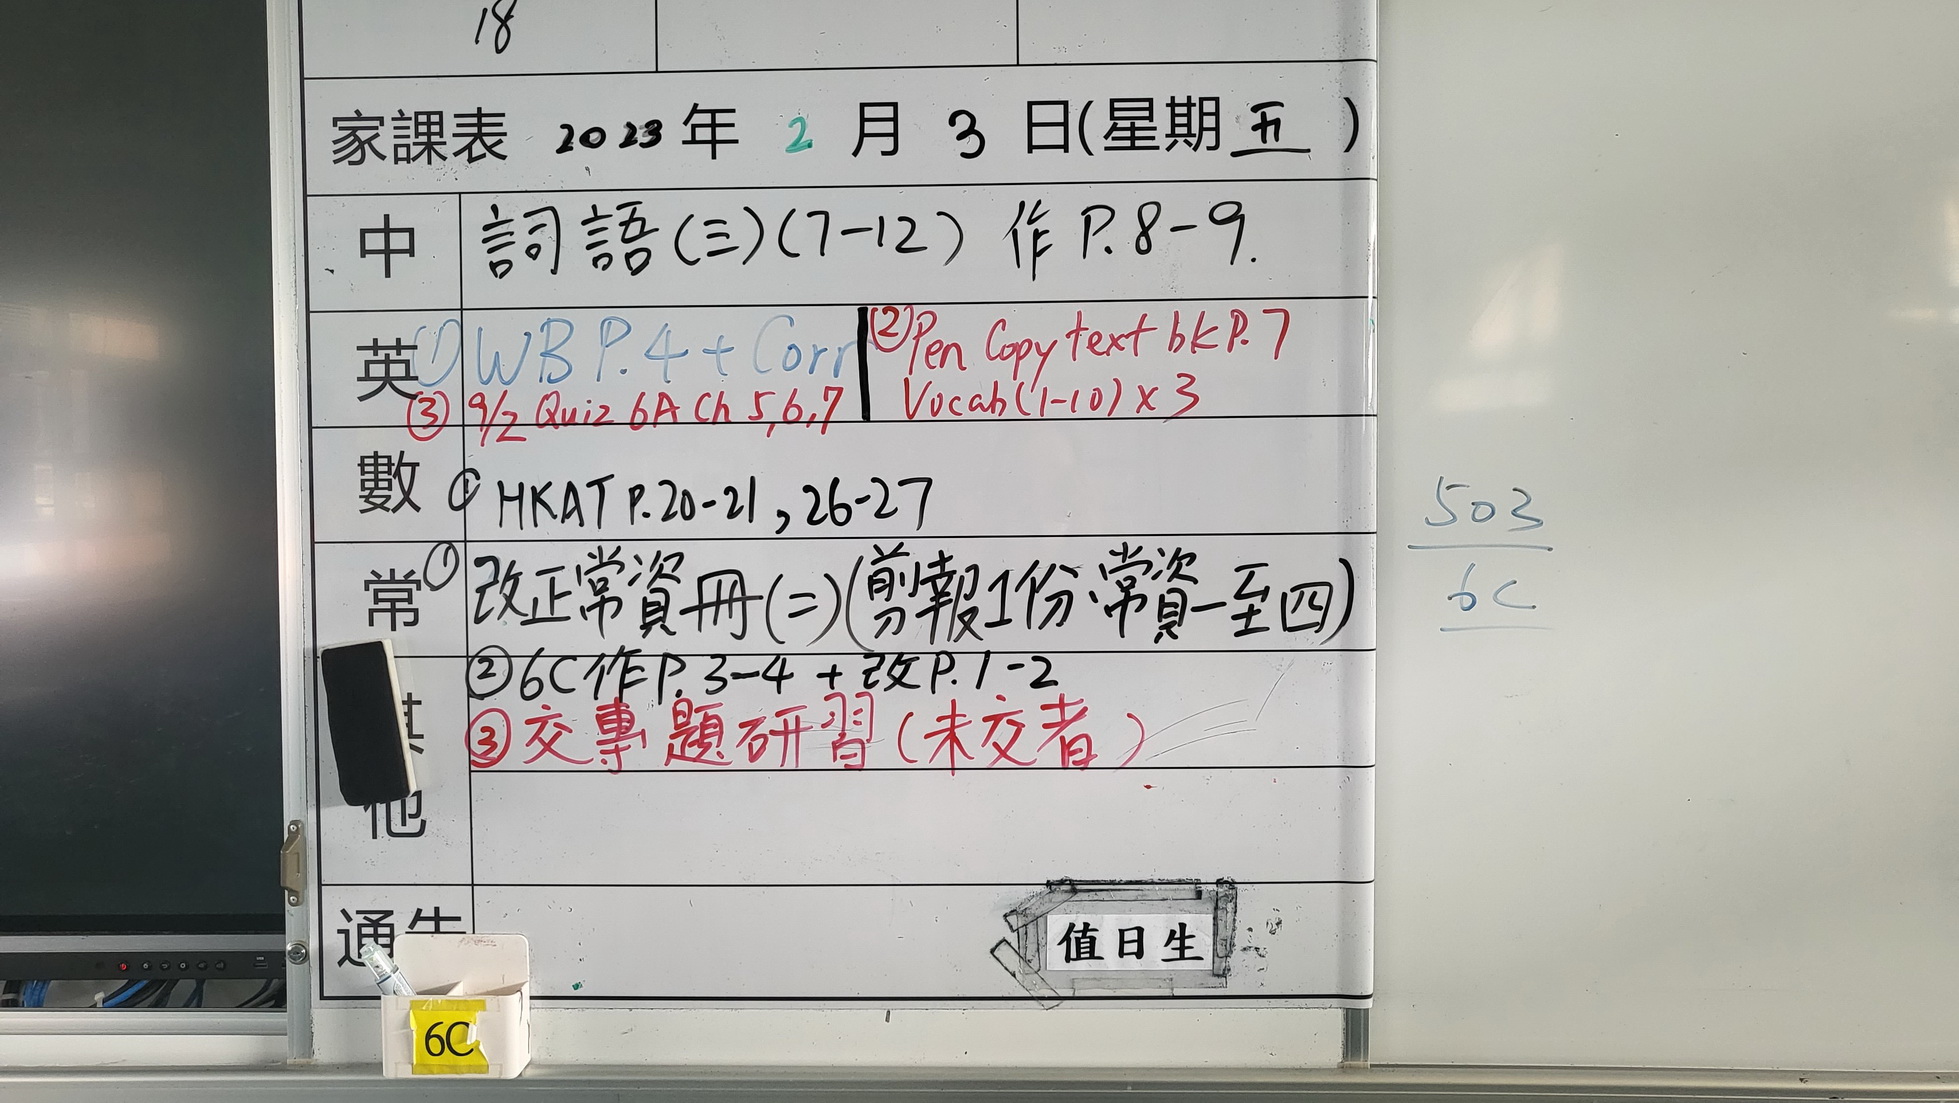 18
家課表 2023年 2 月 3 日(星期五)
中 詞語(三)(7-12) 作P.8-9.
英 (1) WB P.4 + Corr
(2) Pen Copy text bk P.7
Vocab (1-10) x 3
③ 9/2 Quiz 6A Ch 5,6,7
數 ① HKAT P.20-21, 26-27
常 ① 改正常資冊(二)(剪報1份、常資一至四)
② 6C作P.3-4 + 改P.1-2
③ 交專題研習(未交者)
其他
通告
值日生
6C
503
6C